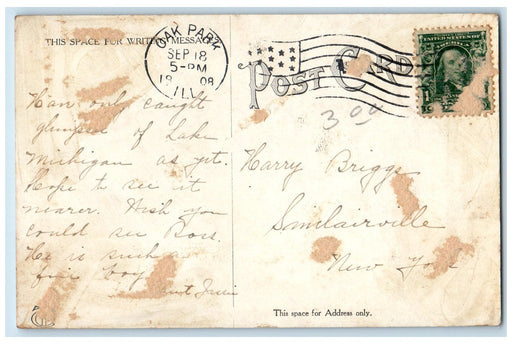 THIS SPACE FOR WRITING MESSAGE
OAK PARK
SEP 18
5-PM
1908
ILL.
POST CARD
UNITED STATES OF AMERICA
3 00
Han only caught
glimpses of Lake
Michigan as yet.
Hope to see it
nearer. Wish you
could see Ross.
He is such a
fine boy.
Aunt
Harry Briggs
Sinclairville
New York
This space for Address only.